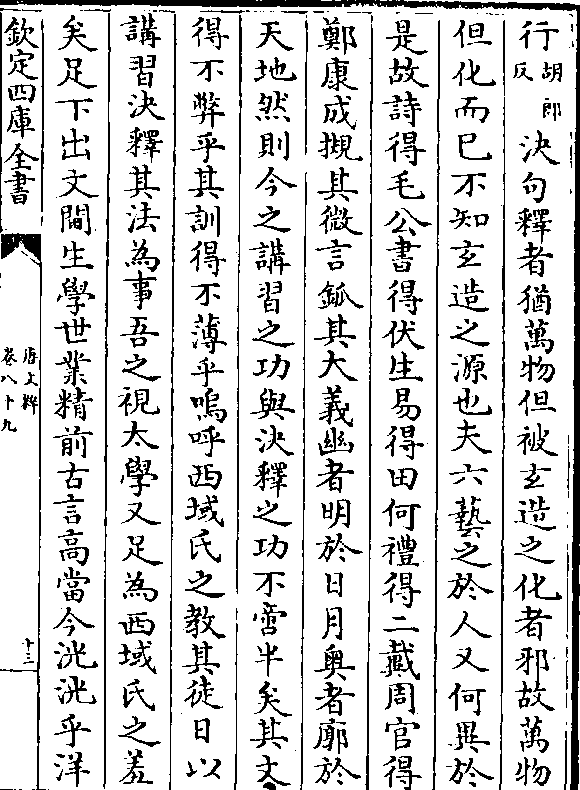 行胡郎反決句釋者猶萬物但被玄造之化者邪故萬物
但化而已不知玄造之源也夫六藝之於人又何異於
是故詩得毛公書得伏生易得田何禮得二戴周官得
鄭康成摫其微言釽其大義幽者明於日月奥者廓於
天地然則今之講習之功與決釋之功不啻半矣其文
得不弊乎其訓得不薄乎嗚呼西域氏之教其徒日以
講習決釋其法為事吾之視太學又足為西域氏之羞
矣足下出文閫生學世業精前古言高當今洸洸乎洋
欽定四庫全書
唐文粹
卷八十九
十三